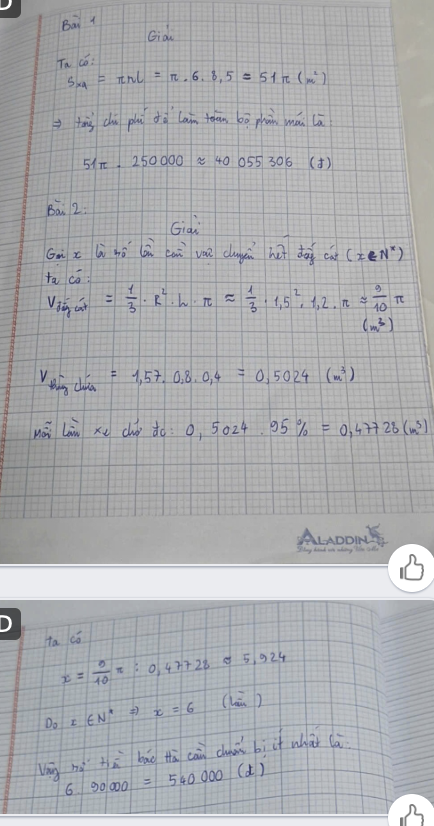 D
Bài 1
Giải
Ta có:
Sxq = πrl = π . 6 . 8,5 = 51π (m²)
⇒ tổng chi phí để làm toàn bộ phần mái là:
51π . 250 000 ≈ 40 055 306 (đ)
Bài 2:
Giải
Gọi x là số lần cần vận chuyển hết đống cát (x ∈ N*)
ta có:
Vđống cát = 1/3 . R² . h . π ≈ 1/3 . 1,5² . 1,2 . π ≈ 9/10 π (m³)
Vthùng chứa = 1,57 . 0,8 . 0,4 = 0,5024 (m³)
Mỗi lần xe chở đc: 0,5024 . 95% = 0,47728 (m³)
ALADDIN
D
ta có
x = 9/10 π : 0,47728 ≈ 5,924
Do x ∈ N* ⇒ x = 6 (lần)
Vậy số tiền bác Hà cần chuẩn bị ít nhất là:
6 . 90 000 = 540 000 (đ)